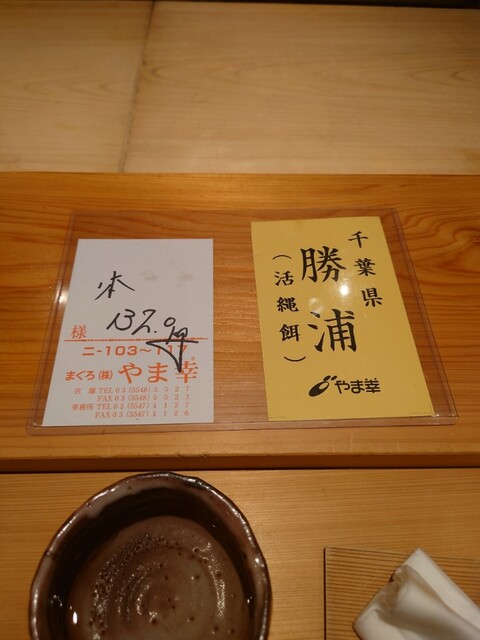 本
137.0kg
様
ニ-103~117
まぐろ(株)やま幸
店舗 TEL 03 (5548) 5527
FAX 03 (5548) 5523
事務所 TEL 03 (5547) 4127
FAX 03 (5547) 4126
千葉県
勝浦
(活縄餌)
やま幸